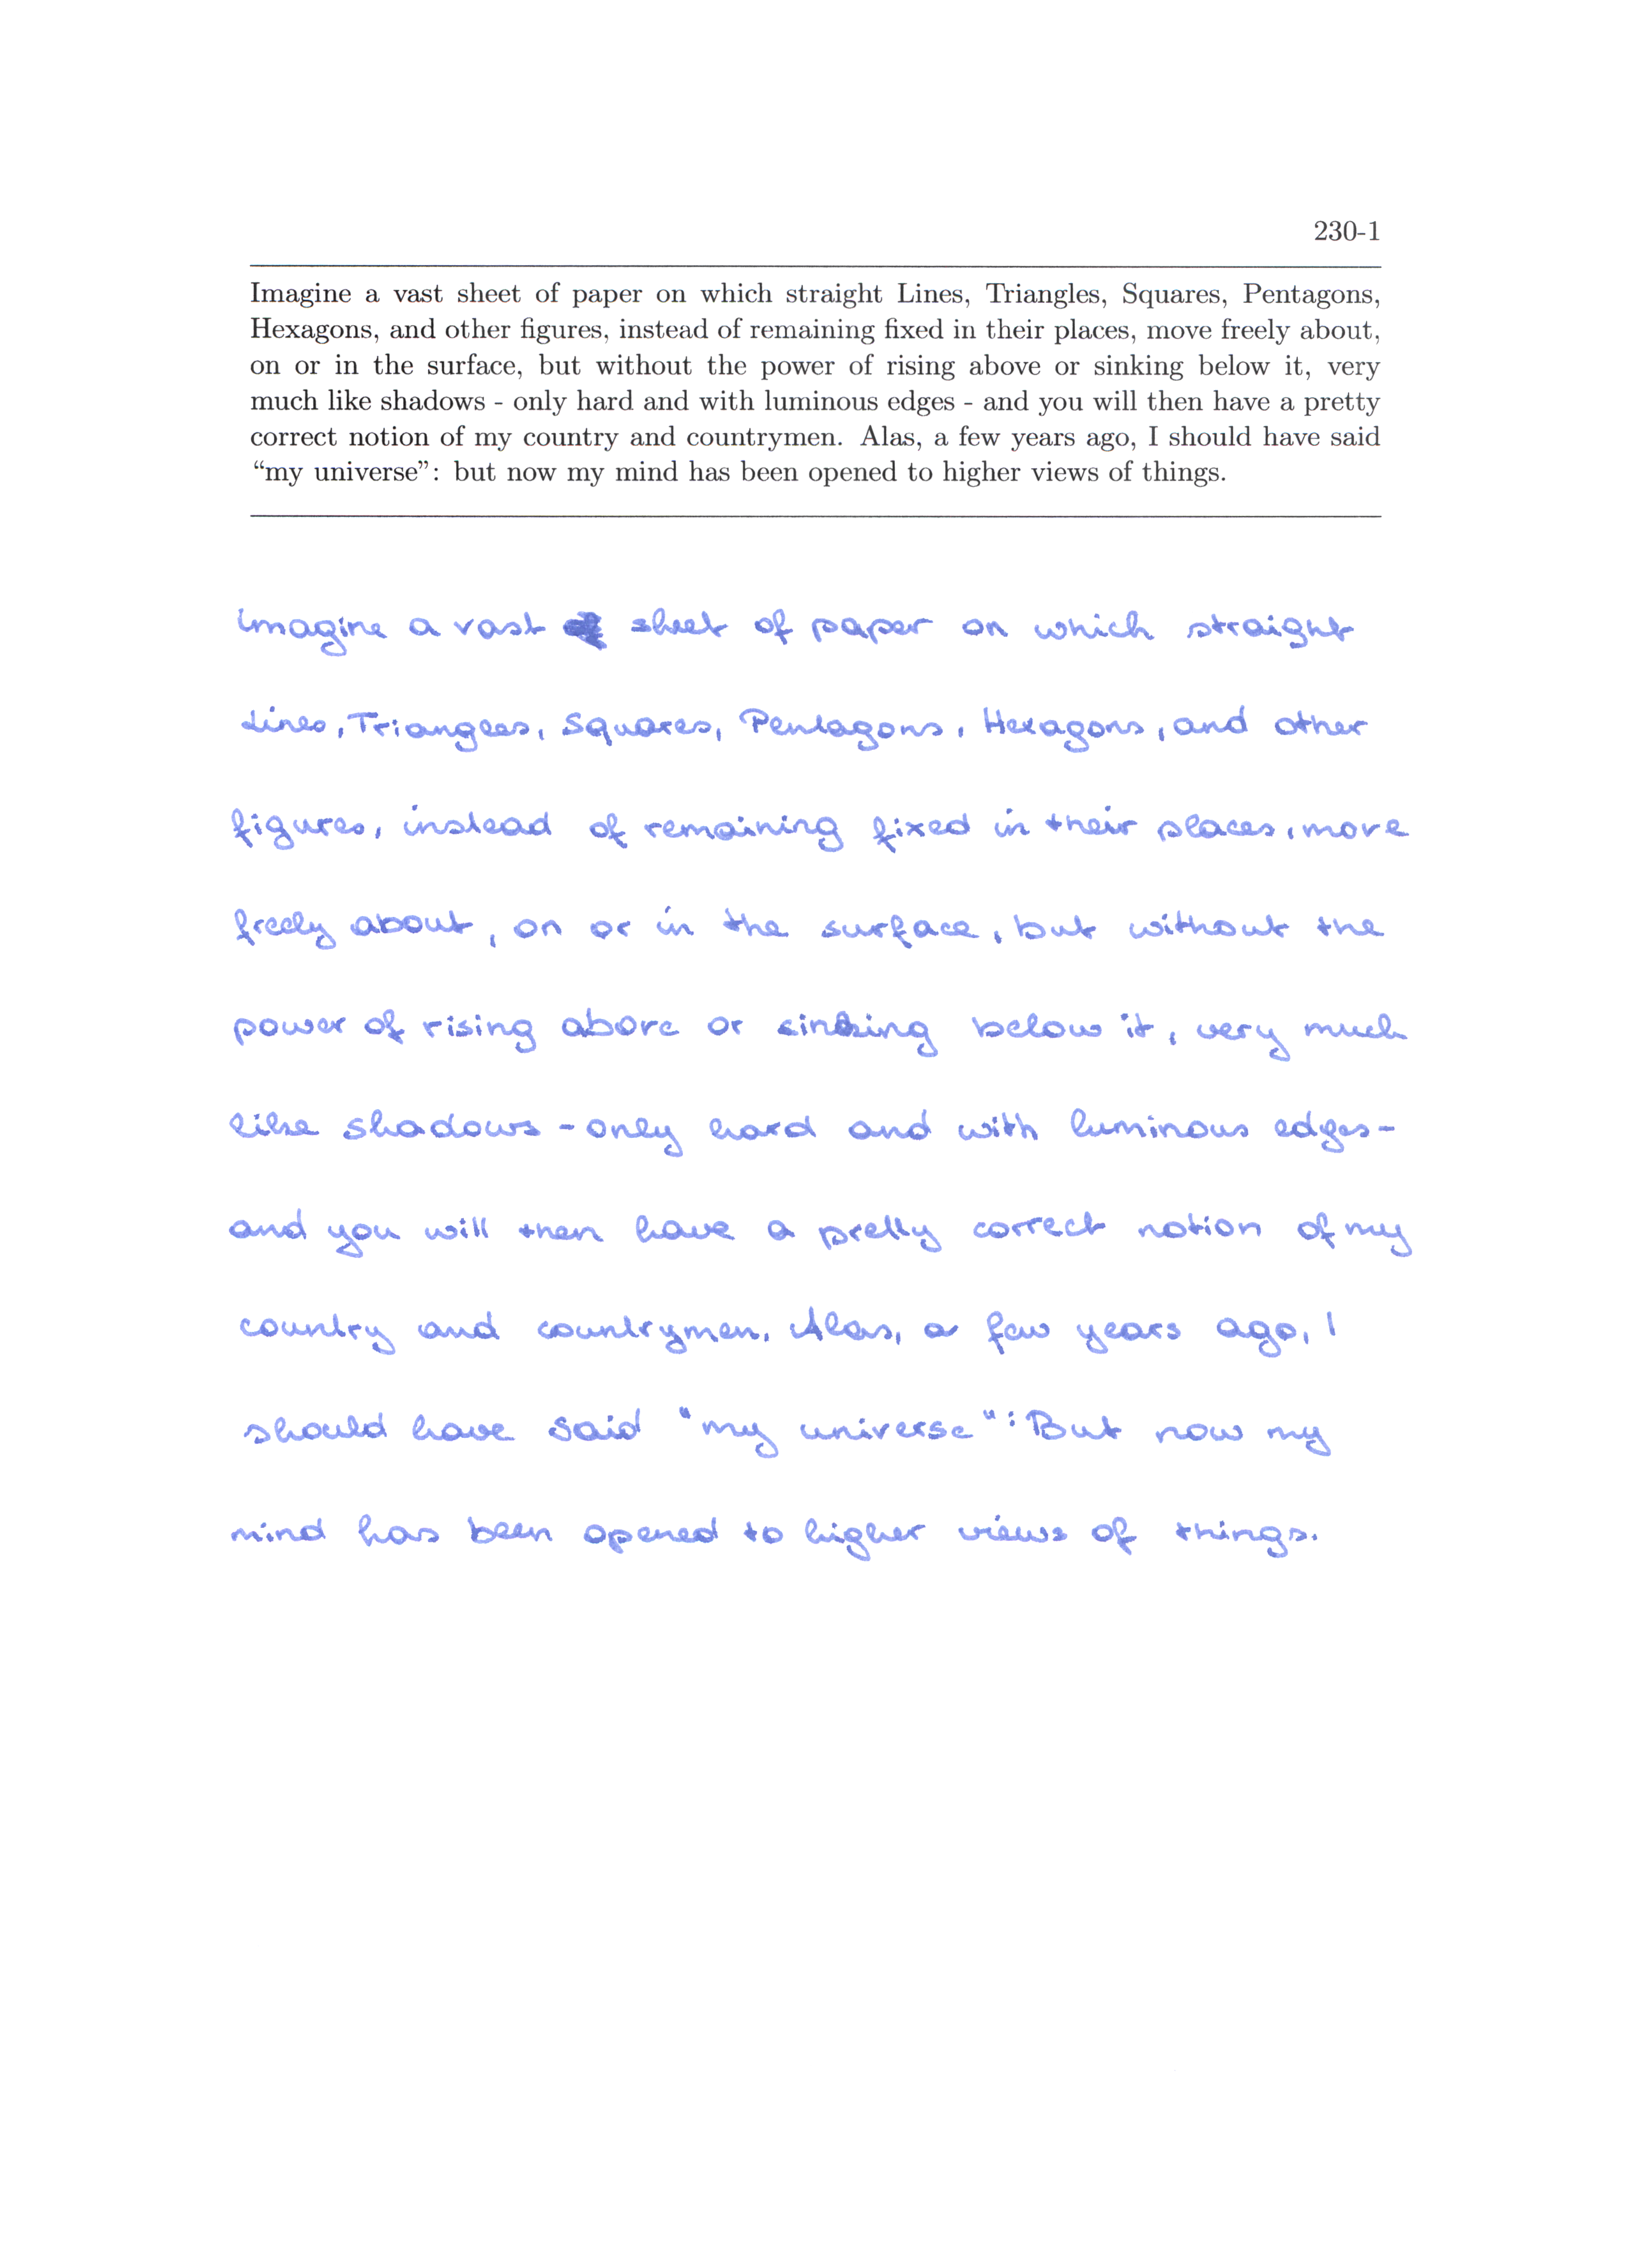 230-1
Imagine a vast sheet of paper on which straight Lines, Triangles, Squares, Pentagons,
Hexagons, and other figures, instead of remaining fixed in their places, move freely about,
on or in the surface, but without the power of rising above or sinking below it, very
much like shadows - only hard and with luminous edges - and you will then have a pretty
correct notion of my country and countrymen. Alas, a few years ago, I should have said
“my universe”: but now my mind has been opened to higher views of things.
Imagine a vast sheet of paper on which straight
Lines, Triangles, Squares, Pentagons, Hexagons, and other
figures, instead of remaining fixed in their places, move
freely about, on or in the surface, but without the
power of rising above or sinking below it, very much
like shadows - only hard and with luminous edges -
and you will then have a pretty correct notion of my
country and countrymen. Alas, a few years ago, I
should have said "my universe": But now my
mind has been opened to higher views of things.